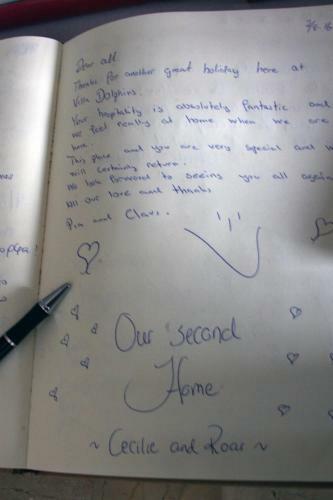 7/8-
Dear all.
Thanks for another great holiday here at
Villa Dolphins.
Your hospitality is absolutely fantastic and
we feel really at home when we are
here.
This place and you are very special and w
will certainly return.
We look forward to seeing you all again
All our love and thanks
Pia and Claus.
Our second
Home
~ Cecilie and Roar ~